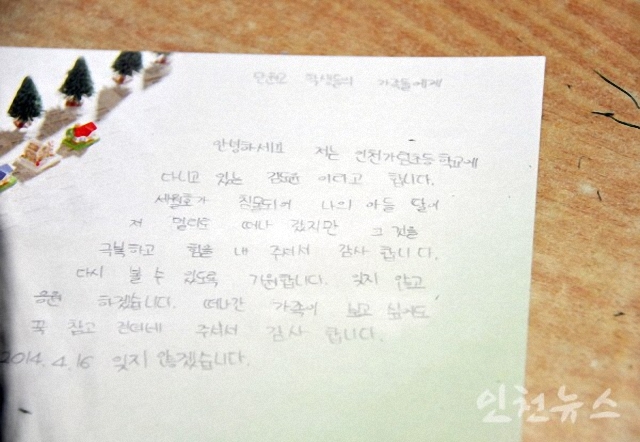 단원고 학생들의 가족들에게
안녕하세요 저는 인천가림초등학교에
다니고 있는 김도윤 이라고 합니다.
세월호가 침몰되어 나의 아들 딸이
저 멀리로 떠나 갔지만 그것을
극복하고 힘을 내 주셔서 감사 합니다.
다시 볼 수 있도록 기원합니다. 잊지 않고
응원 하겠습니다. 떠나간 가족이 보고 싶어도
꾹 참고 견뎌네 주셔서 감사 합니다.
2014.4.16 잊지 않겠습니다.
인천뉴스